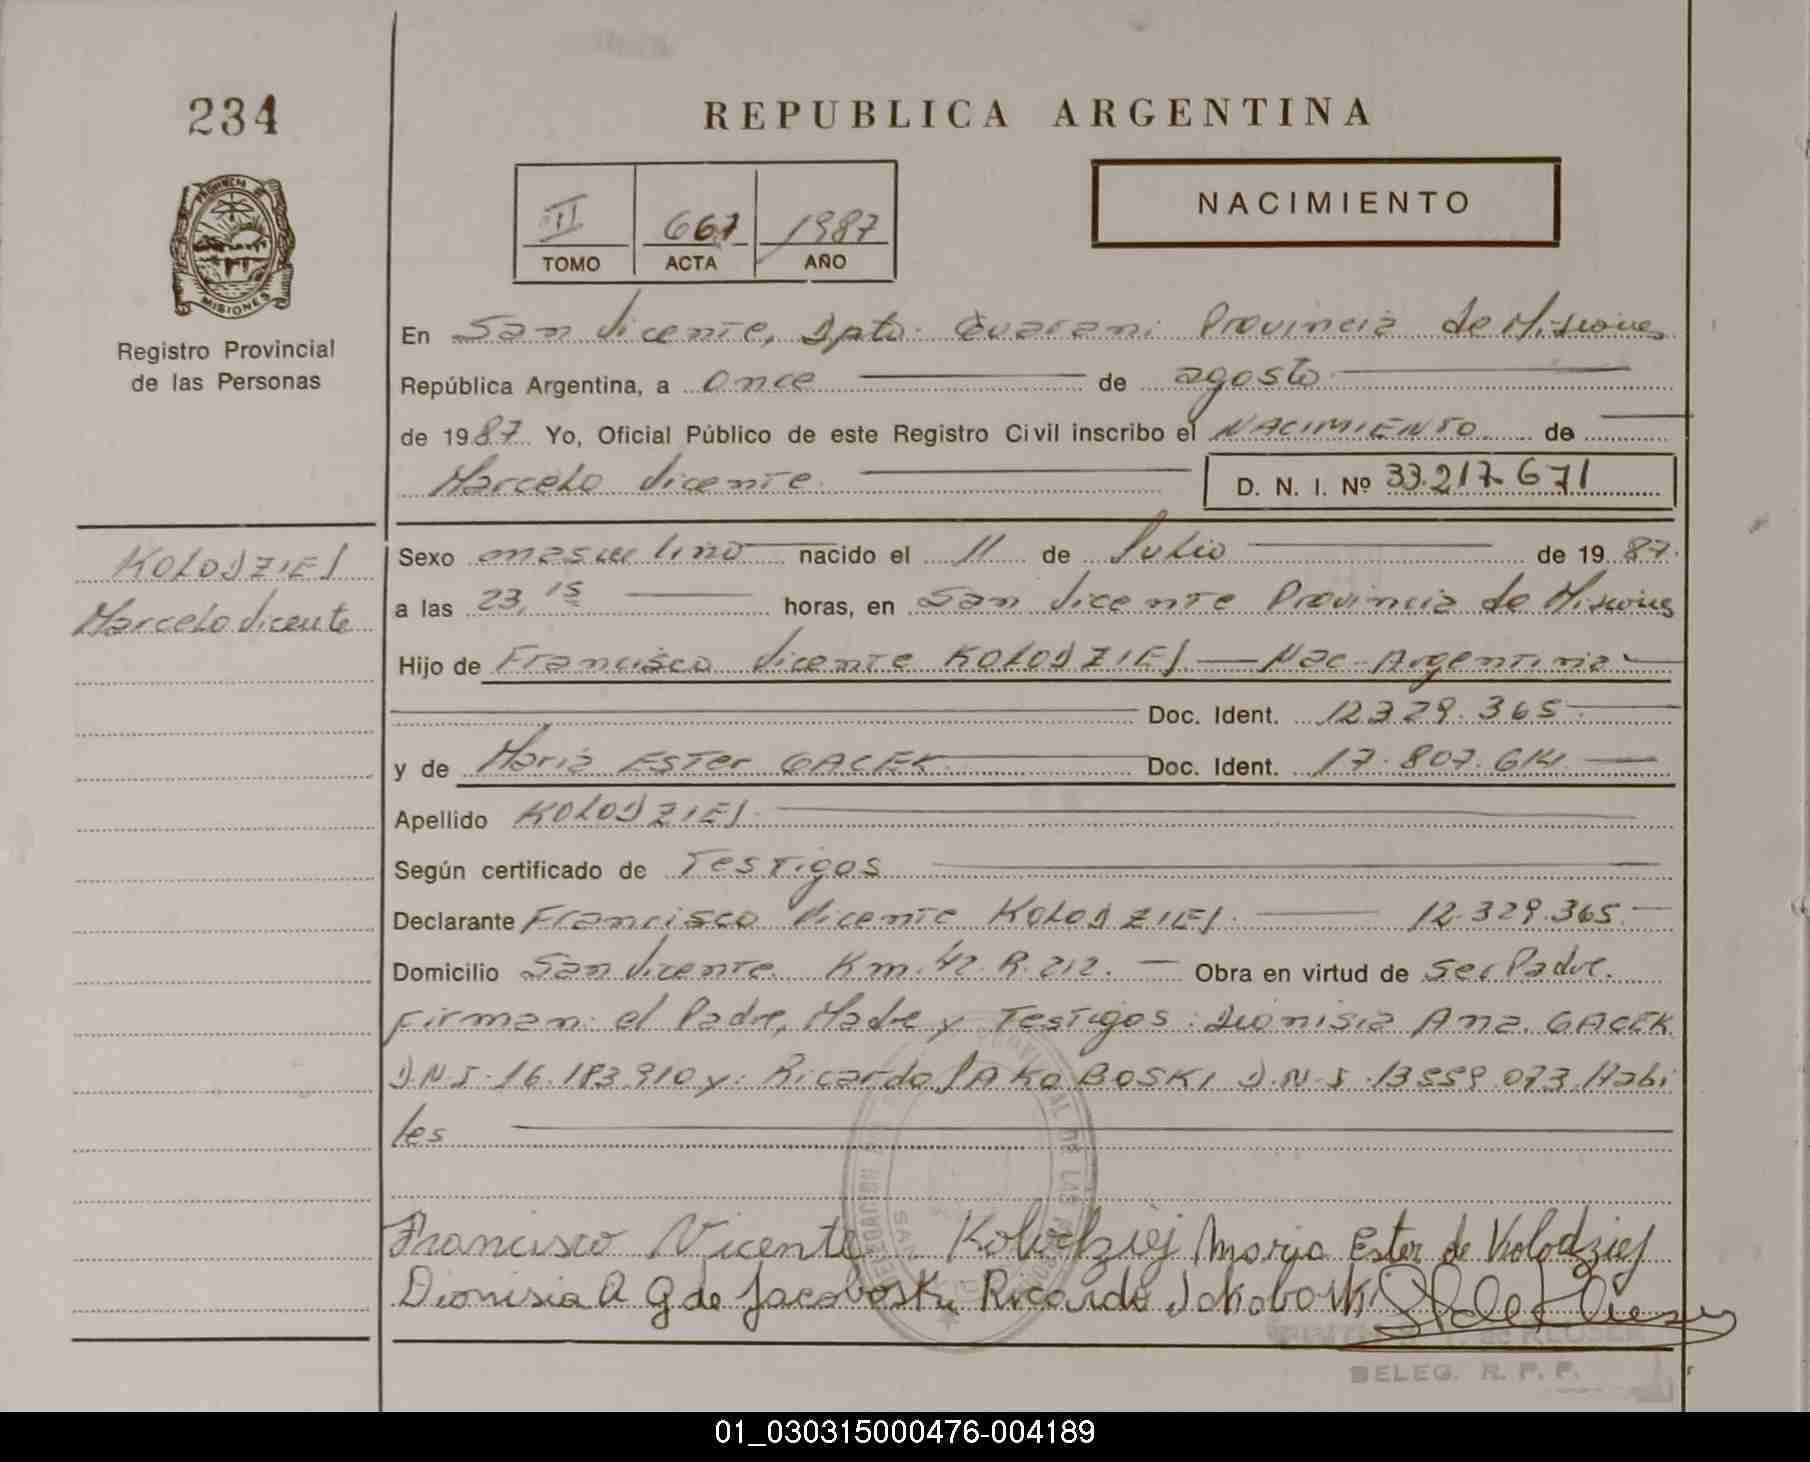 234
REPUBLICA ARGENTINA
NACIMIENTO
II 667 1987
TOMO ACTA AÑO
PROVINCIA DE
MISIONES
Registro Provincial
de las Personas
En San Vicente, Dpto. Guarani Provincia de Misiones
República Argentina, a once de agosto
de 1987 Yo, Oficial Público de este Registro Civil inscribo el NACIMIENTO de
Marcelo Vicente D. N. I. Nº 33.217.671
KOLODZIEJ
Marcelo Vicente
Sexo masculino nacido el 11 de Julio de 1987.
a las 23,15 horas, en San Vicente Provincia de Misiones
Hijo de Francisco Vicente KOLODZIEJ — Nac. Argentina
Doc. Ident. 12.329.365.
y de Maria Ester GACEK Doc. Ident. 17.807.614.
Apellido KOLODZIEJ.
Según certificado de Testigos
Declarante Francisco Vicente KOLODZIEJ. 12.329.365.
Domicilio San Vicente Km. 42. R. 212. — Obra en virtud de ser Padre.
Firman: el Padre, Madre y Testigos: Dionisia Ana GACEK
D.N.I. 16.183.910 y: Ricardo JAKOBOSKI D.N.I. 13.559.073 Habi
les
Francisco Vicente Kolodziej Maria Ester de Kolodziej
Dionisia A G de Jacoboski Ricardo Jakoboski
de KLOSER
DELEG. R. P. P.
01_030315000476-004189